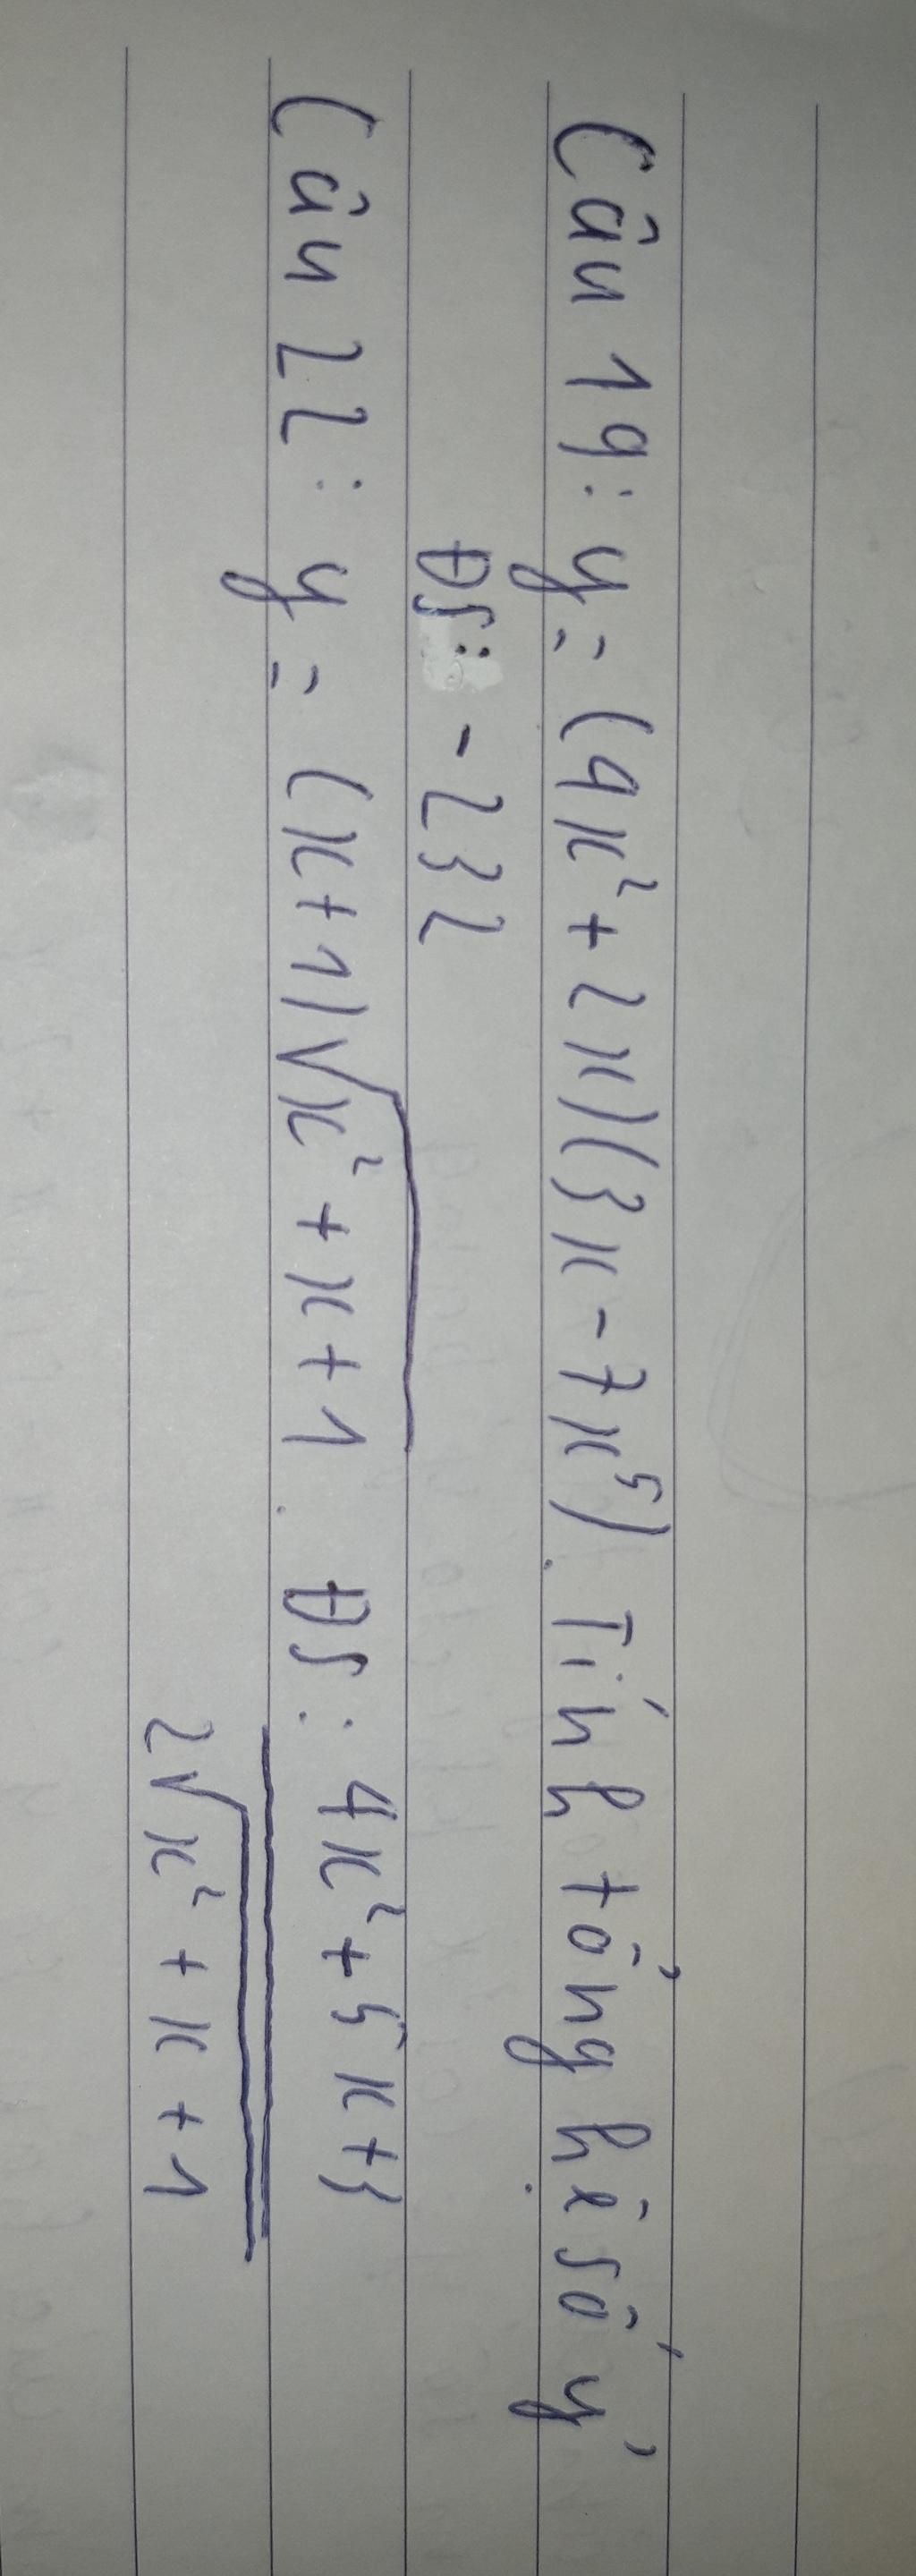 Câu 19: y = (4x²+2x)(3x-7x⁵). Tính tổng hệ số y'
ĐS: -232
Câu 22: y = (x+1)√x²+x+1. ĐS: 4x²+5x+3
2√x²+x+1